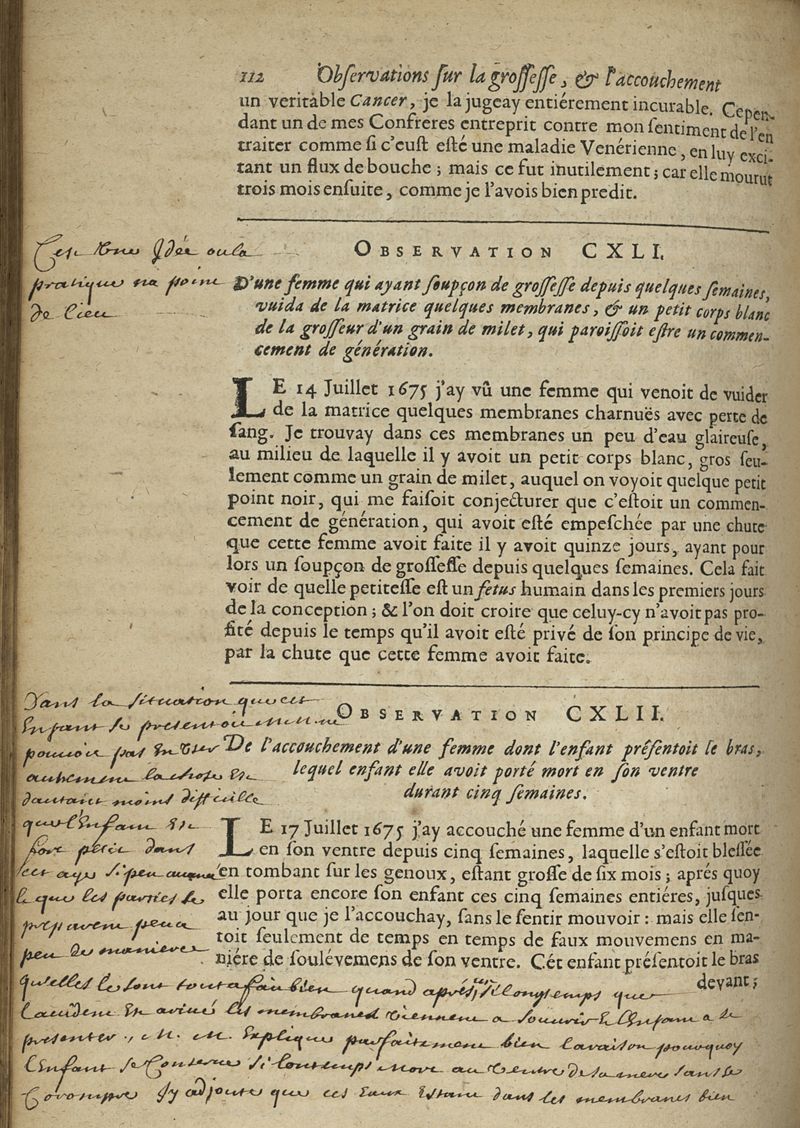 112 Obſervations ſur la groſſeſſe, & l'accouchement
un veritable Cancer, je la jugeay entiérement incurable. Cepen-
dant un de mes Confreres entreprit contre mon ſentiment de l'en
traiter comme ſi c'euſt eſté une maladie Venérienne, en luy exci-
tant un flux de bouche ; mais ce fut inutilement ; car elle mourut
trois mois enſuite, comme je l'avois bien predit.
OBSERVATION CXLI.
Cest une Idée ou la
pratique na point
de lieu
D'une femme qui ayant ſoupçon de groſſeſſe depuis quelques ſemaines,
vuida de la matrice quelques membranes, & un petit corps blanc
de la groſſeur d'un grain de milet, qui paroiſſoit eſtre un commen-
cement de génération.
LE 14 Juillet 1675 j'ay vû une femme qui venoit de vuider
de la matrice quelques membranes charnuës avec perte de
ſang. Je trouvay dans ces membranes un peu d'eau glaireuſe,
au milieu de laquelle il y avoit un petit corps blanc, gros ſeu-
lement comme un grain de milet, auquel on voyoit quelque petit
point noir, qui me faiſoit conjecturer que c'eſtoit un commen-
cement de génération, qui avoit eſté empeſchée par une chute
que cette femme avoit faite il y avoit quinze jours, ayant pour
lors un ſoupçon de groſſeſſe depuis quelques ſemaines. Cela fait
voir de quelle petiteſſe eſt un fetus humain dans les premiers jours
de la conception ; & l'on doit croire que celuy-cy n'avoit pas pro-
fité depuis le temps qu'il avoit eſté privé de ſon principe de vie,
par la chute que cette femme avoit faite.
OBSERVATION CXLII.
De l'accouchement d'une femme dont l'enfant préſentoit le bras,
lequel enfant elle avoit porté mort en ſon ventre
durant cinq ſemaines.
LE 17 Juillet 1675 j'ay accouché une femme d'un enfant mort
en ſon ventre depuis cinq ſemaines, laquelle s'eſtoit bleſſée
en tombant ſur les genoux, eſtant groſſe de ſix mois ; aprés quoy
elle porta encore ſon enfant ces cinq ſemaines entiéres, juſques
au jour que je l'accouchay, ſans le ſentir mouvoir : mais elle ſen-
toit ſeulement de temps en temps de faux mouvemens en ma-
niére de ſoulévemens de ſon ventre. Cét enfant préſentoit le bras
devant ;
Dans la situation que cet
Enfant se presentoit
pouvoit pas
autrement la chose
dautant moins difficille
que l'Enfant
fort petit dans
cet age
que les parties
presptent peu a
peu de maniere
quelles le sont tout a fait bien quand aprés si longtemps que
laccident est arrivé les membranes viennent a souvrir & l'Enfant a se
presenter, Explique parfaitement bien la raison pourquoy
l'Enfant se conserve si longtemps mort au ventre de sa mere sans se
Corompre Jy adjoute que ces Eaux Estant dans les membranes bien